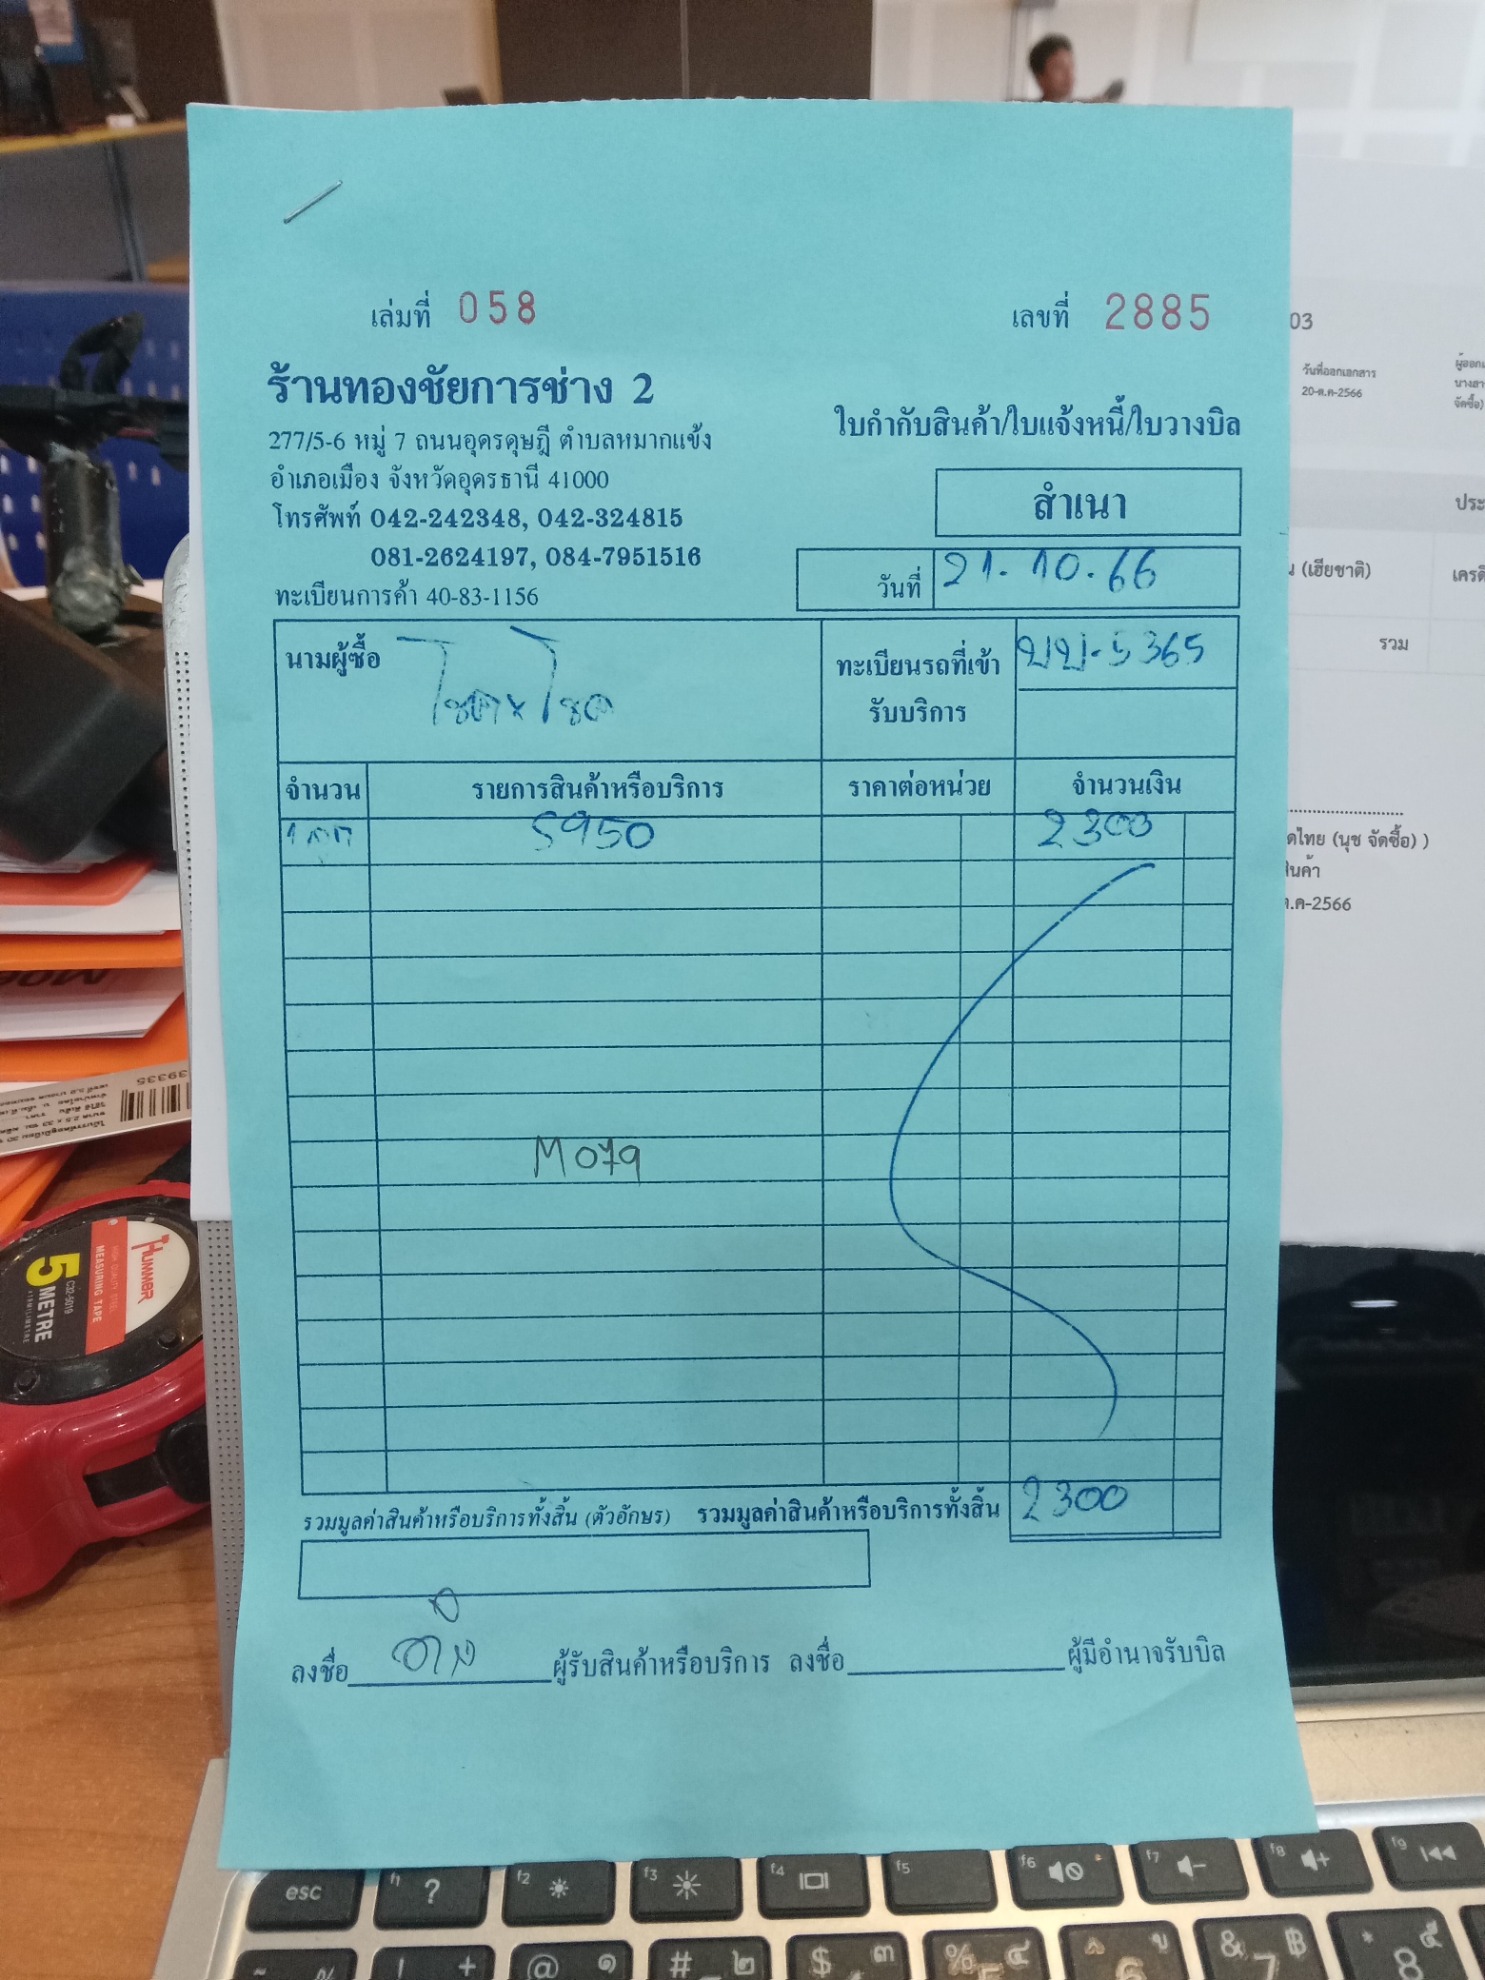 เล่มที่ 058
เลขที่ 2885
ร้านทองชัยการช่าง 2
277/5-6 หมู่ 7 ถนนอุดรดุษฎี ตำบลหมากแข้ง
อำเภอเมือง จังหวัดอุดรธานี 41000
โทรศัพท์ 042-242348, 042-324815
081-2624197, 084-7951516
ทะเบียนการค้า 40-83-1156
ใบกำกับสินค้า/ใบแจ้งหนี้/ใบวางบิล
สำเนา
วันที่ 21.10.66
นามผู้ซื้อ
ทะเบียนรถที่เข้า
รับบริการ
บบ-5365
จำนวน รายการสินค้าหรือบริการ ราคาต่อหน่วย จำนวนเงิน
5950 2300
M079
รวมมูลค่าสินค้าหรือบริการทั้งสิ้น (ตัวอักษร) รวมมูลค่าสินค้าหรือบริการทั้งสิ้น 2300
ลงชื่อ ผู้รับสินค้าหรือบริการ ลงชื่อ ผู้มีอำนาจรับบิล
03
วันที่ออกเอกสาร
20-ต.ค-2566
จัดซื้อ)
(เฮียชาติ)
รวม
ดไทย (นุช จัดซื้อ) )
ต.ค-2566
39335
HUMMER
HIGH QUALITY STEEL
MEASURING TAPE
5 METRE
esc
f1 ?
f2
f3
f4
f5
f6
f7
f8
f9
! +
@ ๑
# ๒
$ ๓
% ๔
6 ู
& 7 ฿
* 8 ๕